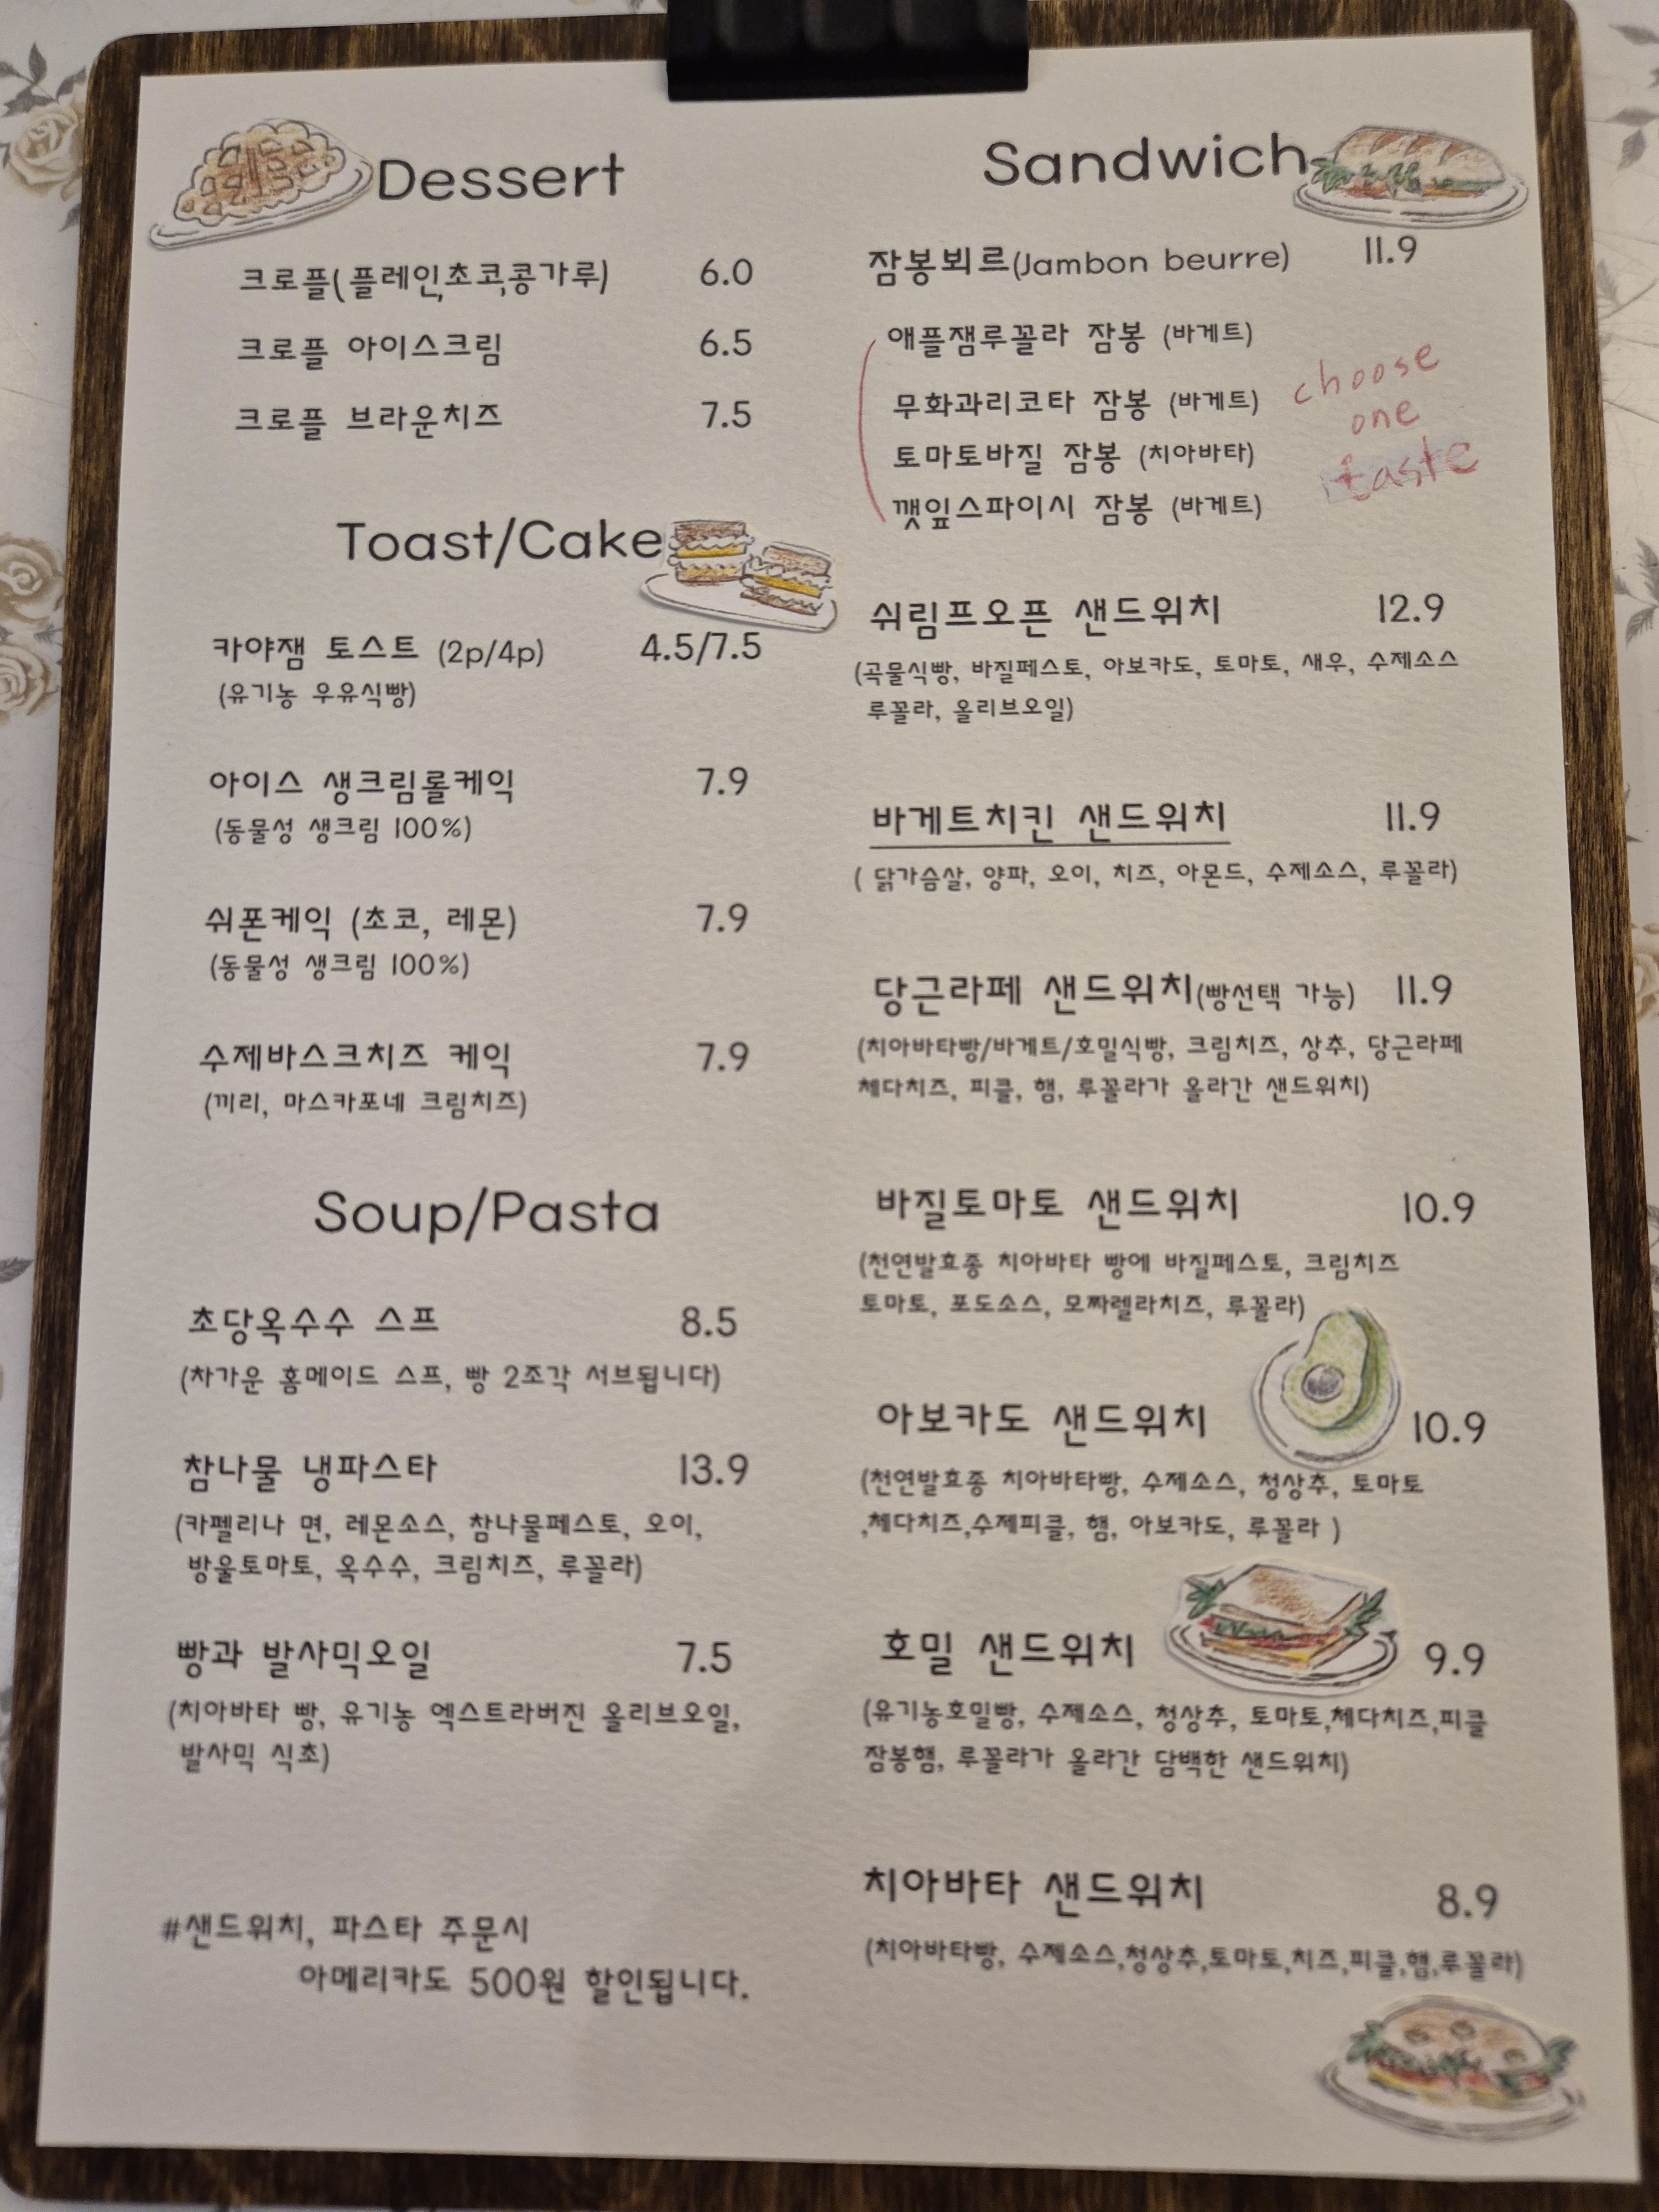 Dessert
크로플(플레인,초코,콩가루) 6.0
크로플 아이스크림 6.5
크로플 브라운치즈 7.5
Toast/Cake
카야잼 토스트 (2p/4p) 4.5/7.5
(유기농 우유식빵)
아이스 생크림롤케익 7.9
(동물성 생크림 100%)
쉬폰케익 (초코, 레몬) 7.9
(동물성 생크림 100%)
수제바스크치즈 케익 7.9
(끼리, 마스카포네 크림치즈)
Soup/Pasta
초당옥수수 스프 8.5
(차가운 홈메이드 스프, 빵 2조각 서브됩니다)
참나물 냉파스타 13.9
(카펠리나 면, 레몬소스, 참나물페스토, 오이,
방울토마토, 옥수수, 크림치즈, 루꼴라)
빵과 발사믹오일 7.5
(치아바타 빵, 유기농 엑스트라버진 올리브오일,
발사믹 식초)
#샌드위치, 파스타 주문시
아메리카도 500원 할인됩니다.
Sandwich
잠봉뵈르(Jambon beurre) 11.9
애플잼루꼴라 잠봉 (바게트)
무화과리코타 잠봉 (바게트)
토마토바질 잠봉 (치아바타)
깻잎스파이시 잠봉 (바게트)
choose
one
taste
쉬림프오픈 샌드위치 12.9
(곡물식빵, 바질페스토, 아보카도, 토마토, 새우, 수제소스
루꼴라, 올리브오일)
바게트치킨 샌드위치 11.9
( 닭가슴살, 양파, 오이, 치즈, 아몬드, 수제소스, 루꼴라)
당근라페 샌드위치(빵선택 가능) 11.9
(치아바타빵/바게트/호밀식빵, 크림치즈, 상추, 당근라페
체다치즈, 피클, 햄, 루꼴라가 올라간 샌드위치)
바질토마토 샌드위치 10.9
(천연발효종 치아바타 빵에 바질페스토, 크림치즈
토마토, 포도소스, 모짜렐라치즈, 루꼴라)
아보카도 샌드위치 10.9
(천연발효종 치아바타빵, 수제소스, 청상추, 토마토
,체다치즈,수제피클, 햄, 아보카도, 루꼴라 )
호밀 샌드위치 9.9
(유기농호밀빵, 수제소스, 청상추, 토마토,체다치즈,피클
잠봉햄, 루꼴라가 올라간 담백한 샌드위치)
치아바타 샌드위치 8.9
(치아바타빵, 수제소스,청상추,토마토,치즈,피클,햄,루꼴라)